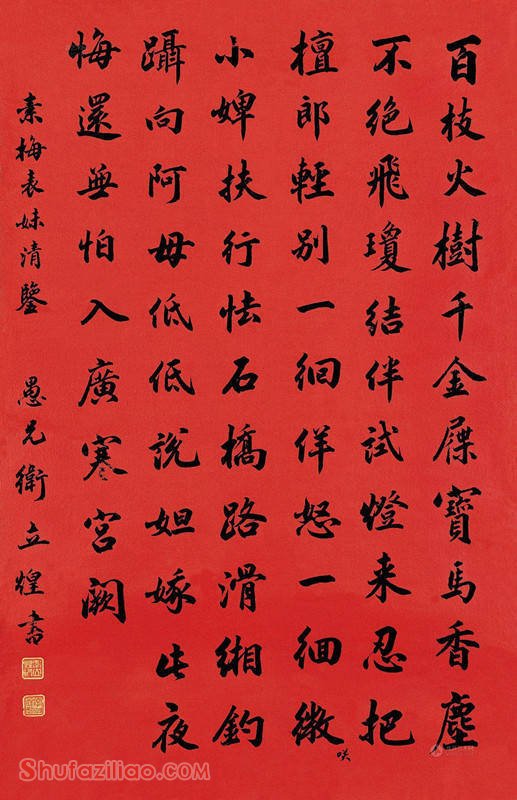 百枝火樹千金屧寶馬香塵
不絕飛瓊結伴試燈来忍把
檀郎輕別一徊佯怒一徊微咲
小婢扶行怯石橋路滑緗釣
躡向阿母低低說姮娥此夜
悔還無怕入廣寒宮闕
素梅表妹清鑒 愚兄衛立煌書
Shufaziliao.com